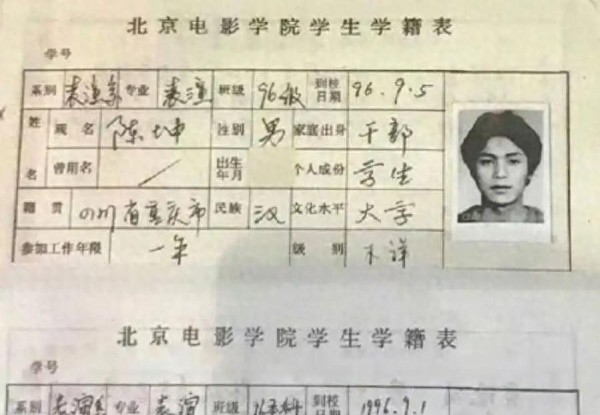 北京电影学院学生学籍表
学号
系别 表演系 专业 表演 班级 96级 到校日期 96.9.5
姓名 现名 陈坤 性别 男 家庭出身 干部
曾用名 / 出生年月 个人成份 学生
籍贯 四川省重庆市 民族 汉 文化水平 大学
参加工作年限 一年 级别 不详
北京电影学院学生学籍表
学号
系别 表演 专业 表演 班级 96本科 到校日期 1996.9.1